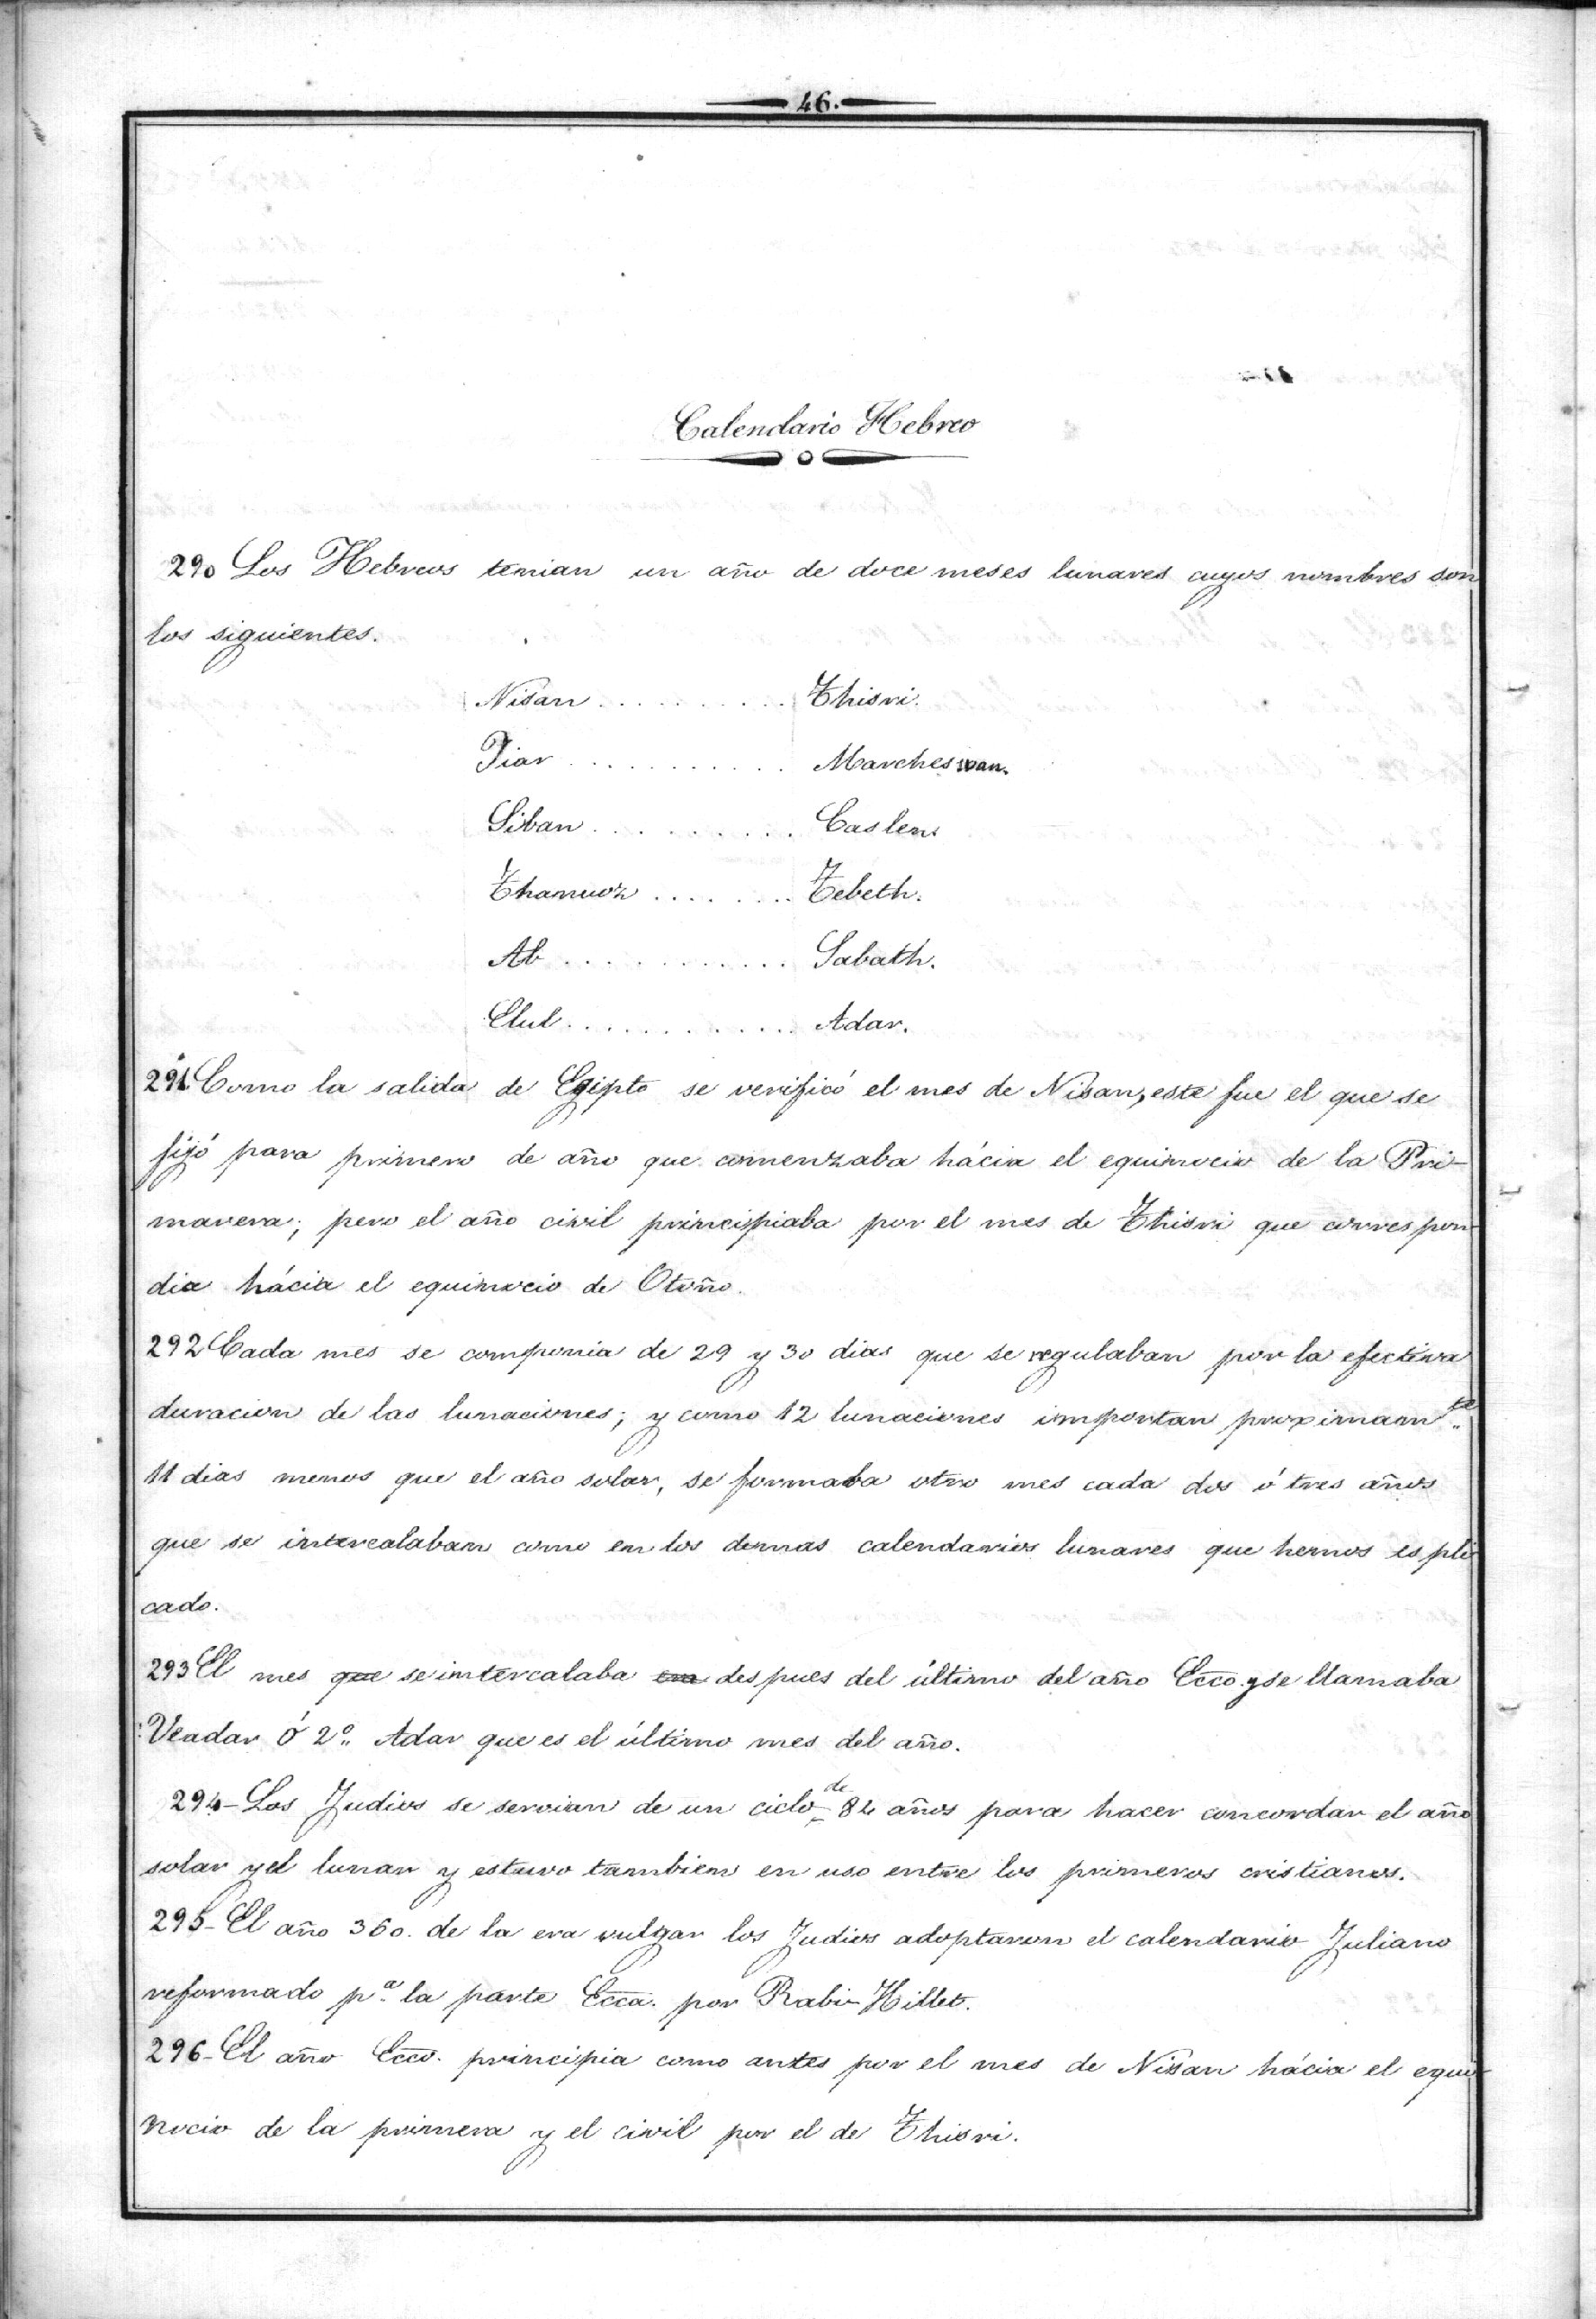 46.
Calendario Hebreo
290 Los Hebreos tenian un año de doce meses lunares cuyos nombres son
los siguientes.
Nisan . . . . . . . . . . Thisri.
Jiar . . . . . . . . . . . Marcheswan.
Siban . . . . . . . . . . Casleu
Thamuoz . . . . . . . Tebeth.
Ab . . . . . . . . . . . Sabath.
Elul . . . . . . . . . . . . Adar.
291 Como la salida de Egipto se verificó el mes de Nisan, este fue el que se
fijó para primero de año que comenzaba hácia el equinocio de la Pri-
mavera; pero el año civil principiaba por el mes de Thisri que correspon-
dia hácia el equinocio de Otoño.
292 Cada mes se componia de 29 y 30 dias que se regulaban por la efectiva
duracion de las lunaciones; y como 12 lunaciones importan proximamte
11 dias menos que el año solar, se formaba otro mes cada dos ó tres años
que se intercalaban como en los demas calendarios lunares que hemos espli
cado.
293 El mes que se intercalaba era despues del último del año Ecco. y se llamaba
Veadar ó 2º Adar que es el último mes del año.
294- Los Judios se servian de un ciclo de 84 años para hacer concordar el año
solar y el lunar y estuvo tambien en uso entre los primeros cristianos.
295- El año 360. de la era vulgar los Judios adoptaron el calendario Juliano
reformado pª la parte Ecca. por Rabi-Hillet.
296- El año Ecco. principia como antes por el mes de Nisan hácia el equi-
nocio de la primera y el civil por el de Thisri.